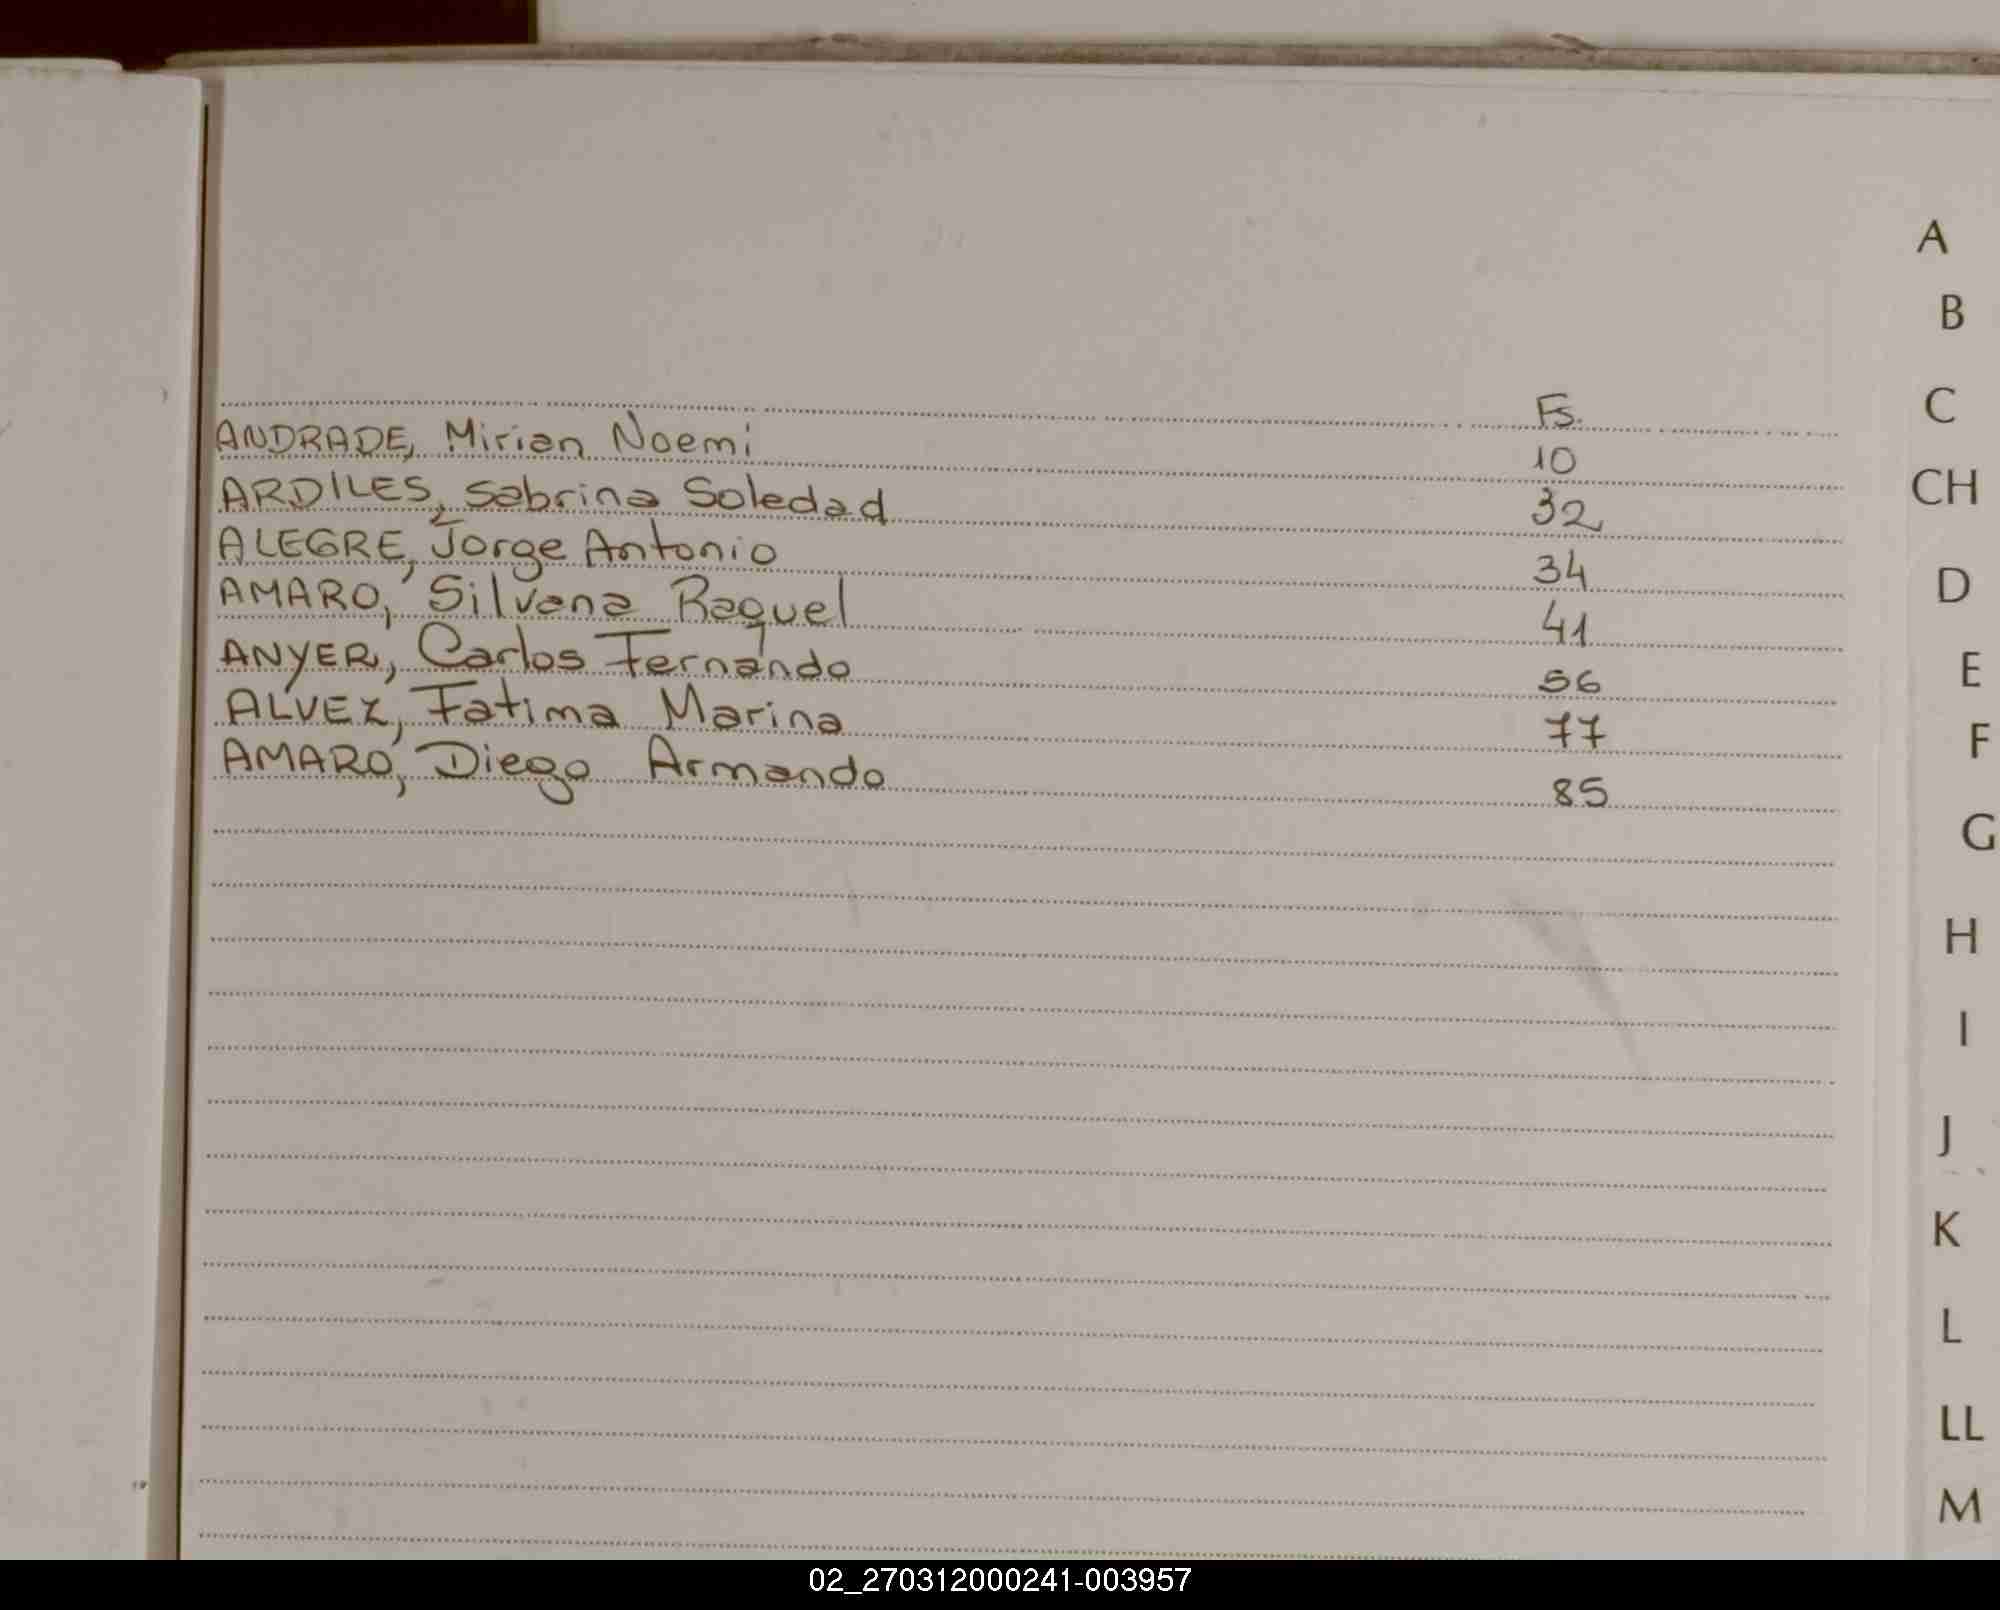 Fs.
ANDRADE, Mirian Noemi 10
ARDILES, Sabrina Soledad 32
ALEGRE, Jorge Antonio 34
AMARO, Silvana Raquel 41
ANYER, Carlos Fernando 56
ALVEZ, Fatima Marina 77
AMARO, Diego Armando 85
A
B
C
CH
D
E
F
G
H
I
J
K
L
LL
M
02_270312000241-003957